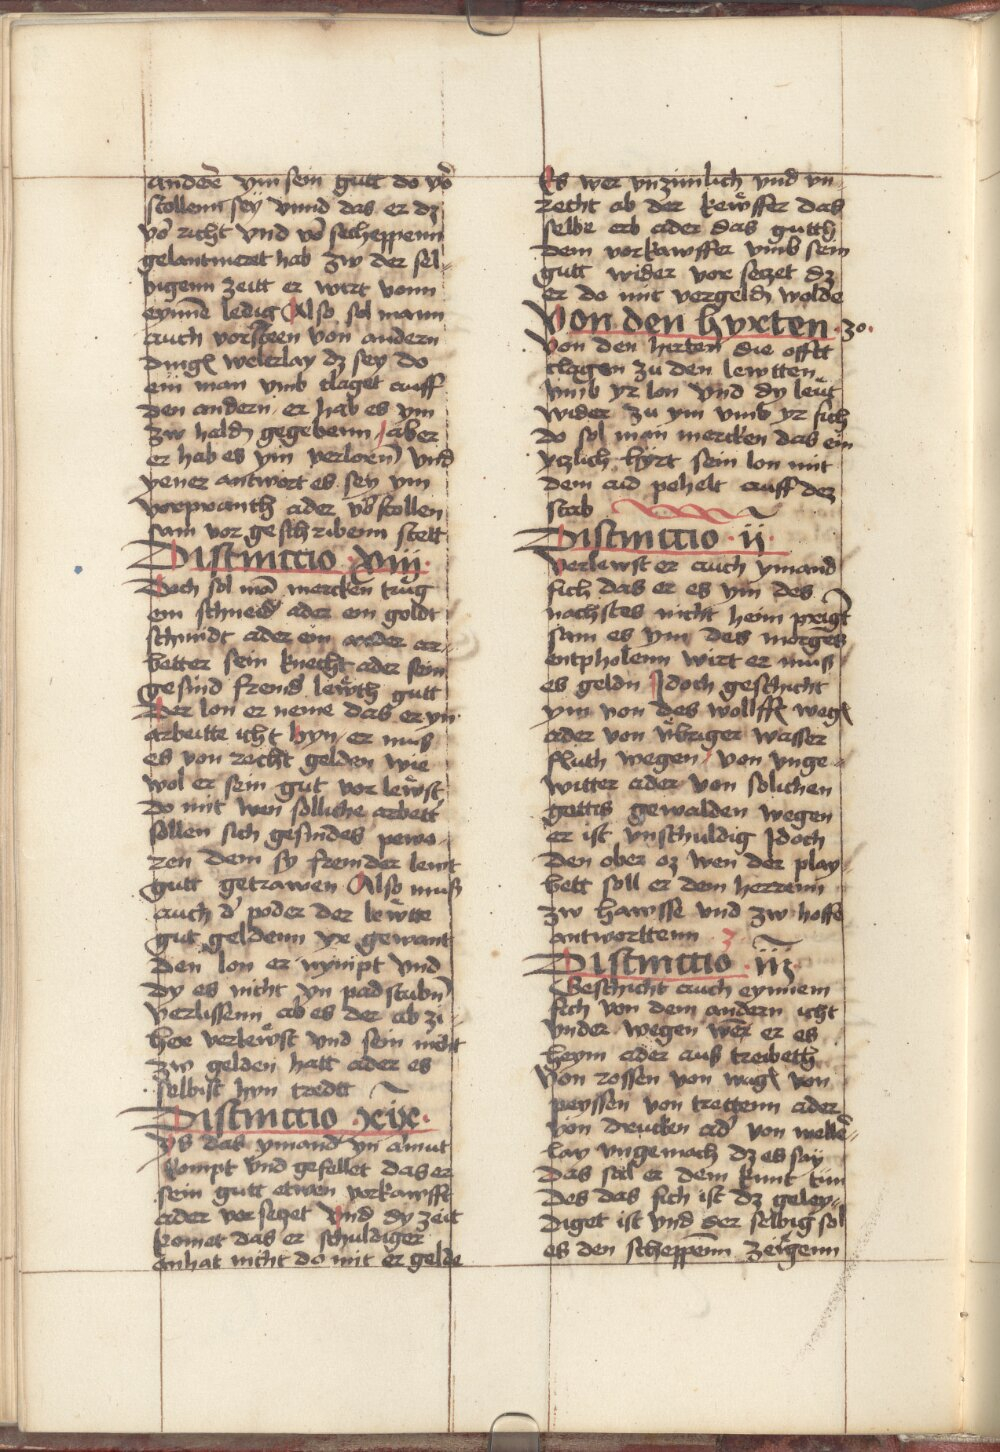 andere ym sein gutt do vo
stollenn seÿ vnnd das er dz
vo richt vnd vo scheppenn
gelantweret hab zw der sel-
bigenn zeitt er wirt vonn
eynne ledig Also sol mann
auch vorsteen von andern
ding welerlay dz sey do
ein man vmb claget auff
den andern er hab es ym
zw haldn gegebenn / aber
er hab es ym verlorn vnd
yener antwort es sey ym
vorprranth ader vo stollen
sam vor geschribenn stett
Distinctio xviij.
Doch sol man mercken trug
ein schneid ader ein goldt
schmidt ader ein ander ar-
beiter sein knecht ader sein
gesind fremd lewth gutt
Der lon er neme das er yn
arbeitte icht hyn er mus
es von recht gelden wie
wol er sein gut vor lewst
do mit wen solliche arbett
sollen sich gesindes pewa
ren dem sy fremder lewt
gutt getrawen Also muß
auch d poder der lewtte
gut geldenn yr gewant
den lon er nympt vnd
dy es nicht yn padstubn
verlissenn ab es der ab zi-
her verlewst vnd sein nicht
zw gelden hatt ader es
selbist hyn tredtt
Distinctio xix.
Is das ymand yn armut
kompt vnd gefellet das er
sein gutt etwen vorkawfft
ader vor setzet Vnd dy zeit
komet das er schuldiger
an hat nicht do mit er gelde
Es wer vnzimlich vnd vn-
recht ab der kewffer das
selbe erb ader das gutth
dem vorkawffer vmb sein
gutt wider vor setzet dz
er do mit vergeldn wolde
Von den hyrten .30.
Von den hirten die offtt
clagen zu den lewtten
vmb yr lon vnd dy leut
wider zu ym vmb yr fich
do sol man mercken das ein
yczlich hyrt sein lon mit
dem aid pehelt auff dez
stab
Distinctio .ij.
Verlewst er auch ymand
fich das er es ym des
nachstes nicht heim pringt
sam es ym des morgens
entpholenn wirt er mus
es geldn Jdoch geschicht
ym von des wollffs weg
ader von vbriger wasser
fluth wegen / von vnge-
witter ader von solichen
gottis gewalden wegen
er ist vnschuldig Jdoch
den ober oz wen der play-
bett soll er dem herrenn
zw hawsse vnd zw hoffe
antworttenn
Distinctio .iij.
Geschicht auch eynnem
fich von dem andern icht
vnder wegen wer er es
heym ader aus treibeth
Von rossen von wag von
peyssen von trettenn ader
von drucken ad von weller-
lay vngemach dz es saÿ
das sal er dem kunt tun
des das fich ist dz geley-
diget ist vnd der selbig sol
es den scheppenn zeigenn